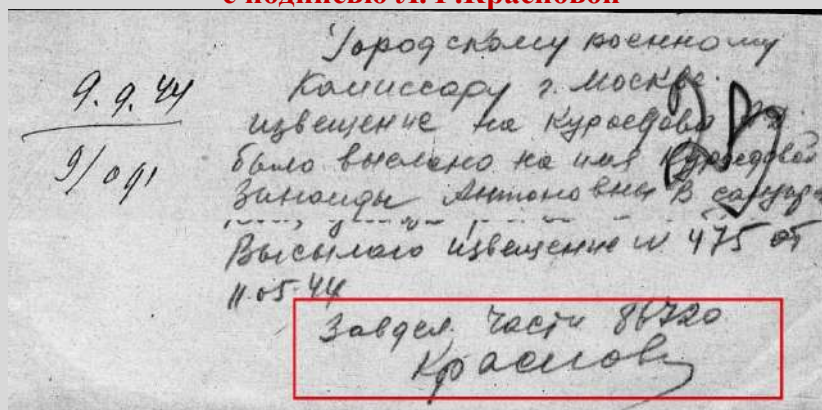 с подписью Л. Г.Красновой
Городскому военному
9.9.44
Комиссару г. Москве.
извещение на Куроедова
9/091
было выслано на имя Куроедовой
Зинаиды Антоновны В
Высылаю извещение № 475 от
11.05.44
Завдел. Части 86720
Краснов